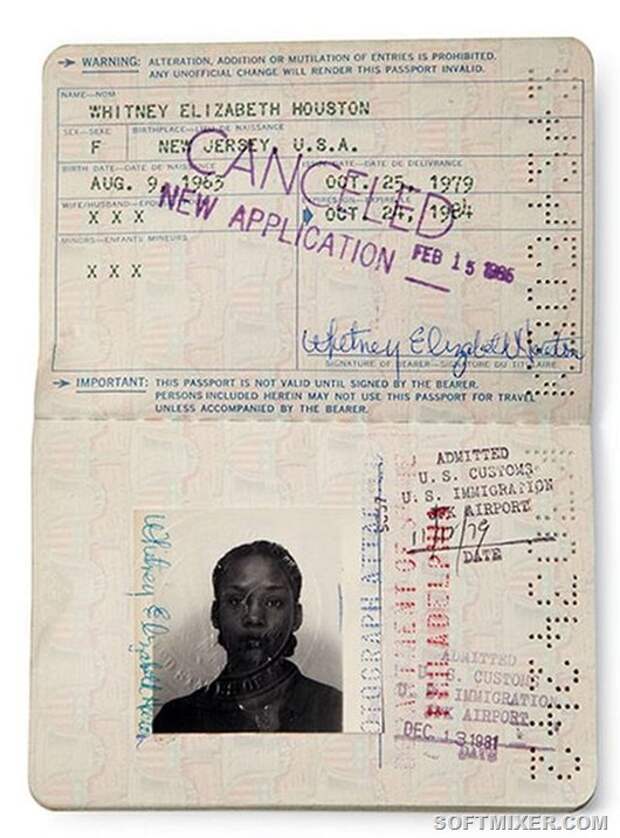 WARNING: ALTERATION, ADDITION OR MUTILATION OF ENTRIES IS PROHIBITED.
ANY UNOFFICIAL CHANGE WILL RENDER THIS PASSPORT INVALID.
NAME—NOM
WHITNEY ELIZABETH HOUSTON
SEX—SEXE BIRTHPLACE—LIEU DE NAISSANCE
F NEW JERSEY, U.S.A.
BIRTH DATE—DATE DE NAISSANCE ISSUE DATE—DATE DE DELIVRANCE
AUG. 9, 1963 OCT. 25, 1979
WIFE/HUSBAND—EPOUSE EXPIRES ON—EXPIRE LE
X X X OCT. 24, 1984
CANCELED
NEW APPLICATION
FEB 15
MINORS—ENFANTS MINEURS
X X X
Whitney Elizabeth Houston
SIGNATURE OF BEARER—SIGNATURE DU TITULAIRE
IMPORTANT: THIS PASSPORT IS NOT VALID UNTIL SIGNED BY THE BEARER.
PERSONS INCLUDED HEREIN MAY NOT USE THIS PASSPORT FOR TRAVEL
UNLESS ACCOMPANIED BY THE BEARER.
ADMITTED
U. S. CUSTOMS
U. S. IMMIGRATION
JFK AIRPORT
DATE
Whitney Elizabeth Houston
PHOTOGRAPH ATTACHED
DEPARTMENT OF STATE
PHILADELPHIA
ADMITTED
U. S. CUSTOMS
U. S. IMMIGRATION
JFK AIRPORT
DEC 13 1981
DATE
SOFTMIXER.COM